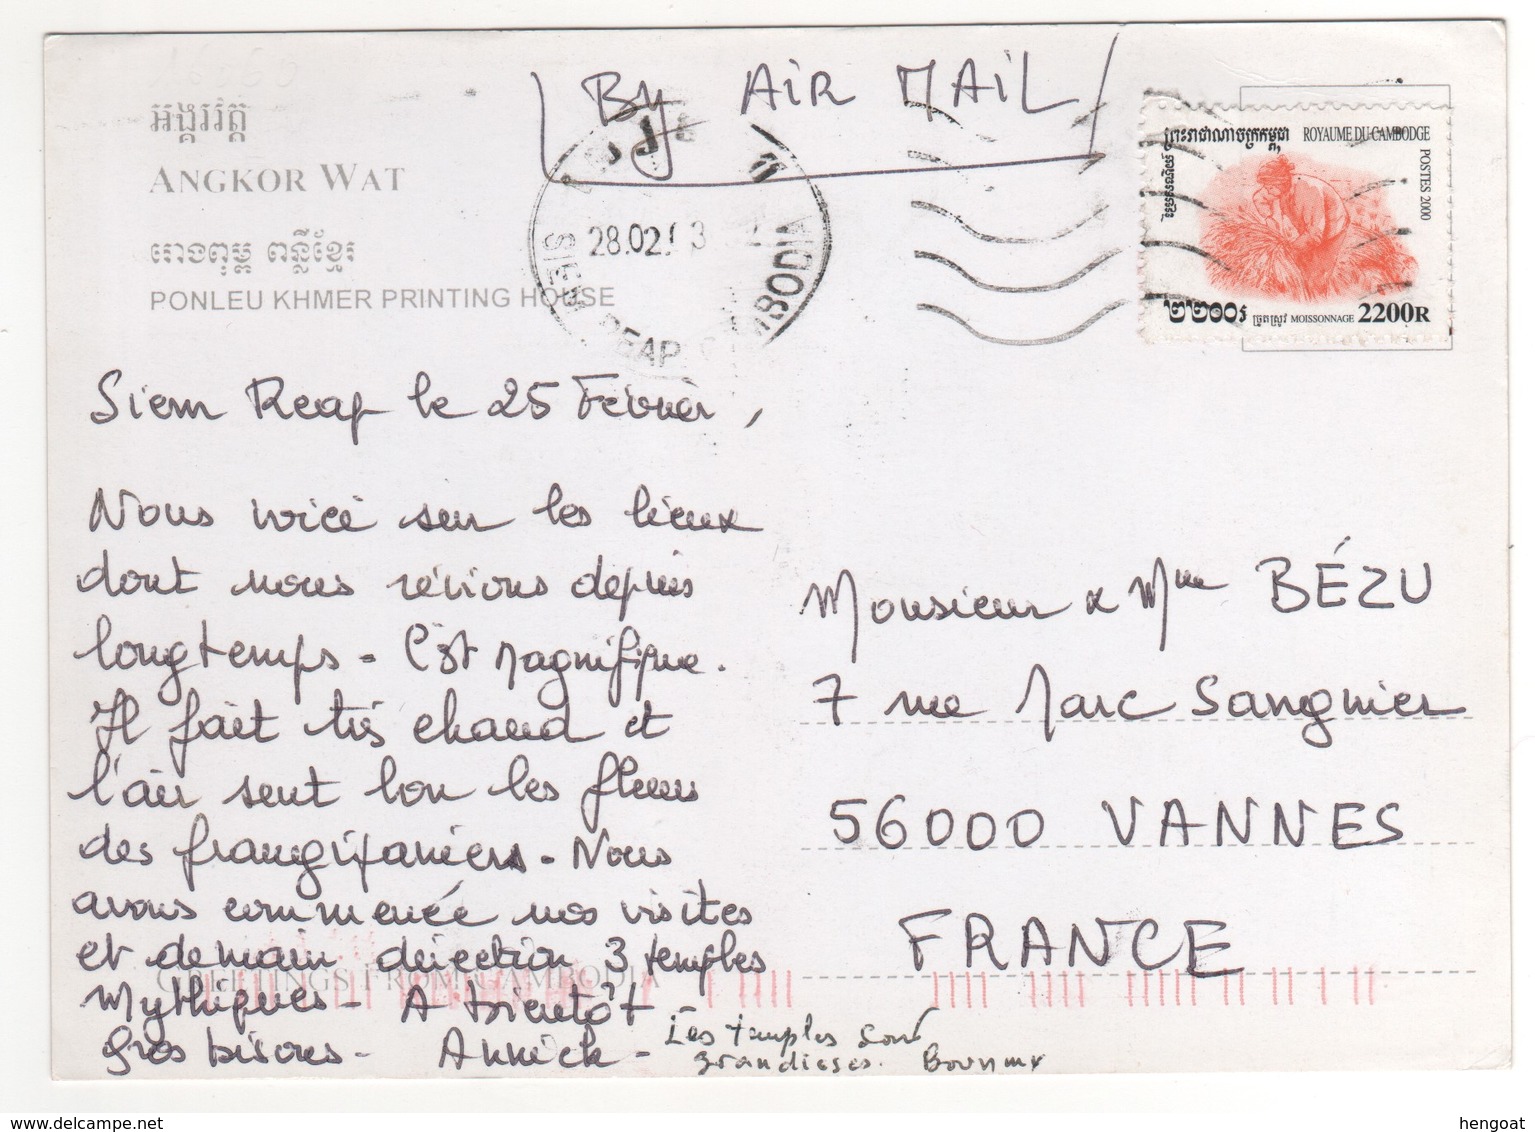 By AiR MAiL
អង្គរវត្ត
ANGKOR WAT
រោងពុម្ព ពន្លឺខ្មែរ
PONLEU KHMER PRINTING HOUSE
28.02.03
SIEM REAP CAMBODIA
ព្រះរាជាណាចក្រកម្ពុជា ROYAUME DU CAMBODGE
POSTES 2000
២២០០រ ច្រូតស្រូវ MOISSONNAGE 2200R
Siem Reap le 25 Février,
Nous voici sur les lieux
dont nous rêvions depuis
longtemps - C'est magnifique.
Il fait très chaud et
l'air sent bon les fleurs
des frangipaniers - Nous
avons commencée nos visites
et demain direction 3 temples
Mythiques - A bientôt -
Gros bisous - Annick -
Les temples sont
grandioses.
Monsieur & Mme BÉZU
7 rue Marc Sangnier
56000 VANNES
FRANCE
GREETINGS FROM CAMBODIA
www.delcampe.net
hengoat